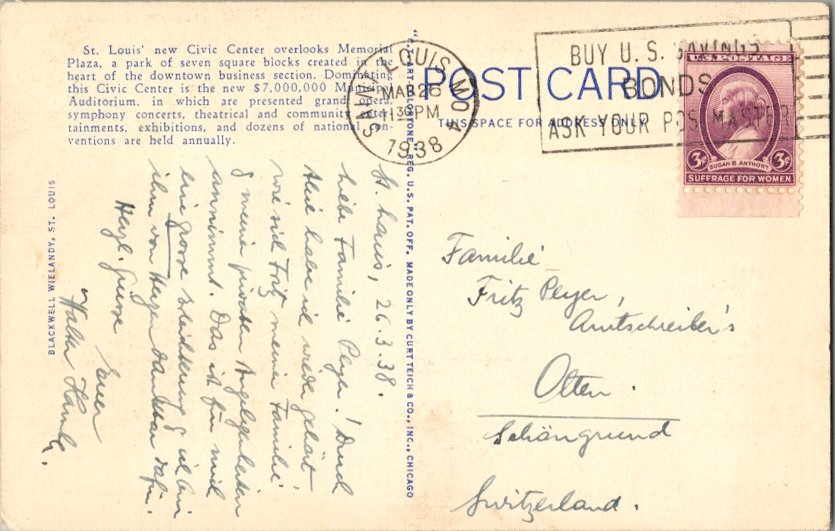 St. Louis' new Civic Center overlooks Memorial
Plaza, a park of seven square blocks created in the
heart of the downtown business section. Dominating
this Civic Center is the new $7,000,000 Municipal
Auditorium, in which are presented grand opera,
symphony concerts, theatrical and community enter-
tainments, exhibitions, and dozens of national con-
ventions are held annually.
POST CARD
THIS SPACE FOR ADDRESS ONLY
SAINT LOUIS, MO. 4
MAR 26
1130 PM
1938
BUY U.S. SAVINGS
BONDS
ASK YOUR POSTMASTER
U.S. POSTAGE
3¢ 3¢
SUSAN B. ANTHONY
SUFFRAGE FOR WOMEN
REG. U.S. PAT. OFF. MADE ONLY BY CURT TEICH & CO., INC., CHICAGO
BLACKWELL WIELANDY, ST. LOUIS
St. Louis, 26.3.38.
Liebe Familie Peyer! Durch
habe ich wieder gehört
wie sich Fritz meiner Familie
& meiner privaten Angelegenheiten
annimmt. Das ist für mich
eine grosse Erleichterung & ich bin
ihm von Herzen dankbar dafür.
Herzl. Grüsse
Euer
Walter
Familie
Fritz Peyer,
Amtschreiber's
Olten.
Schöngrund
Switzerland.